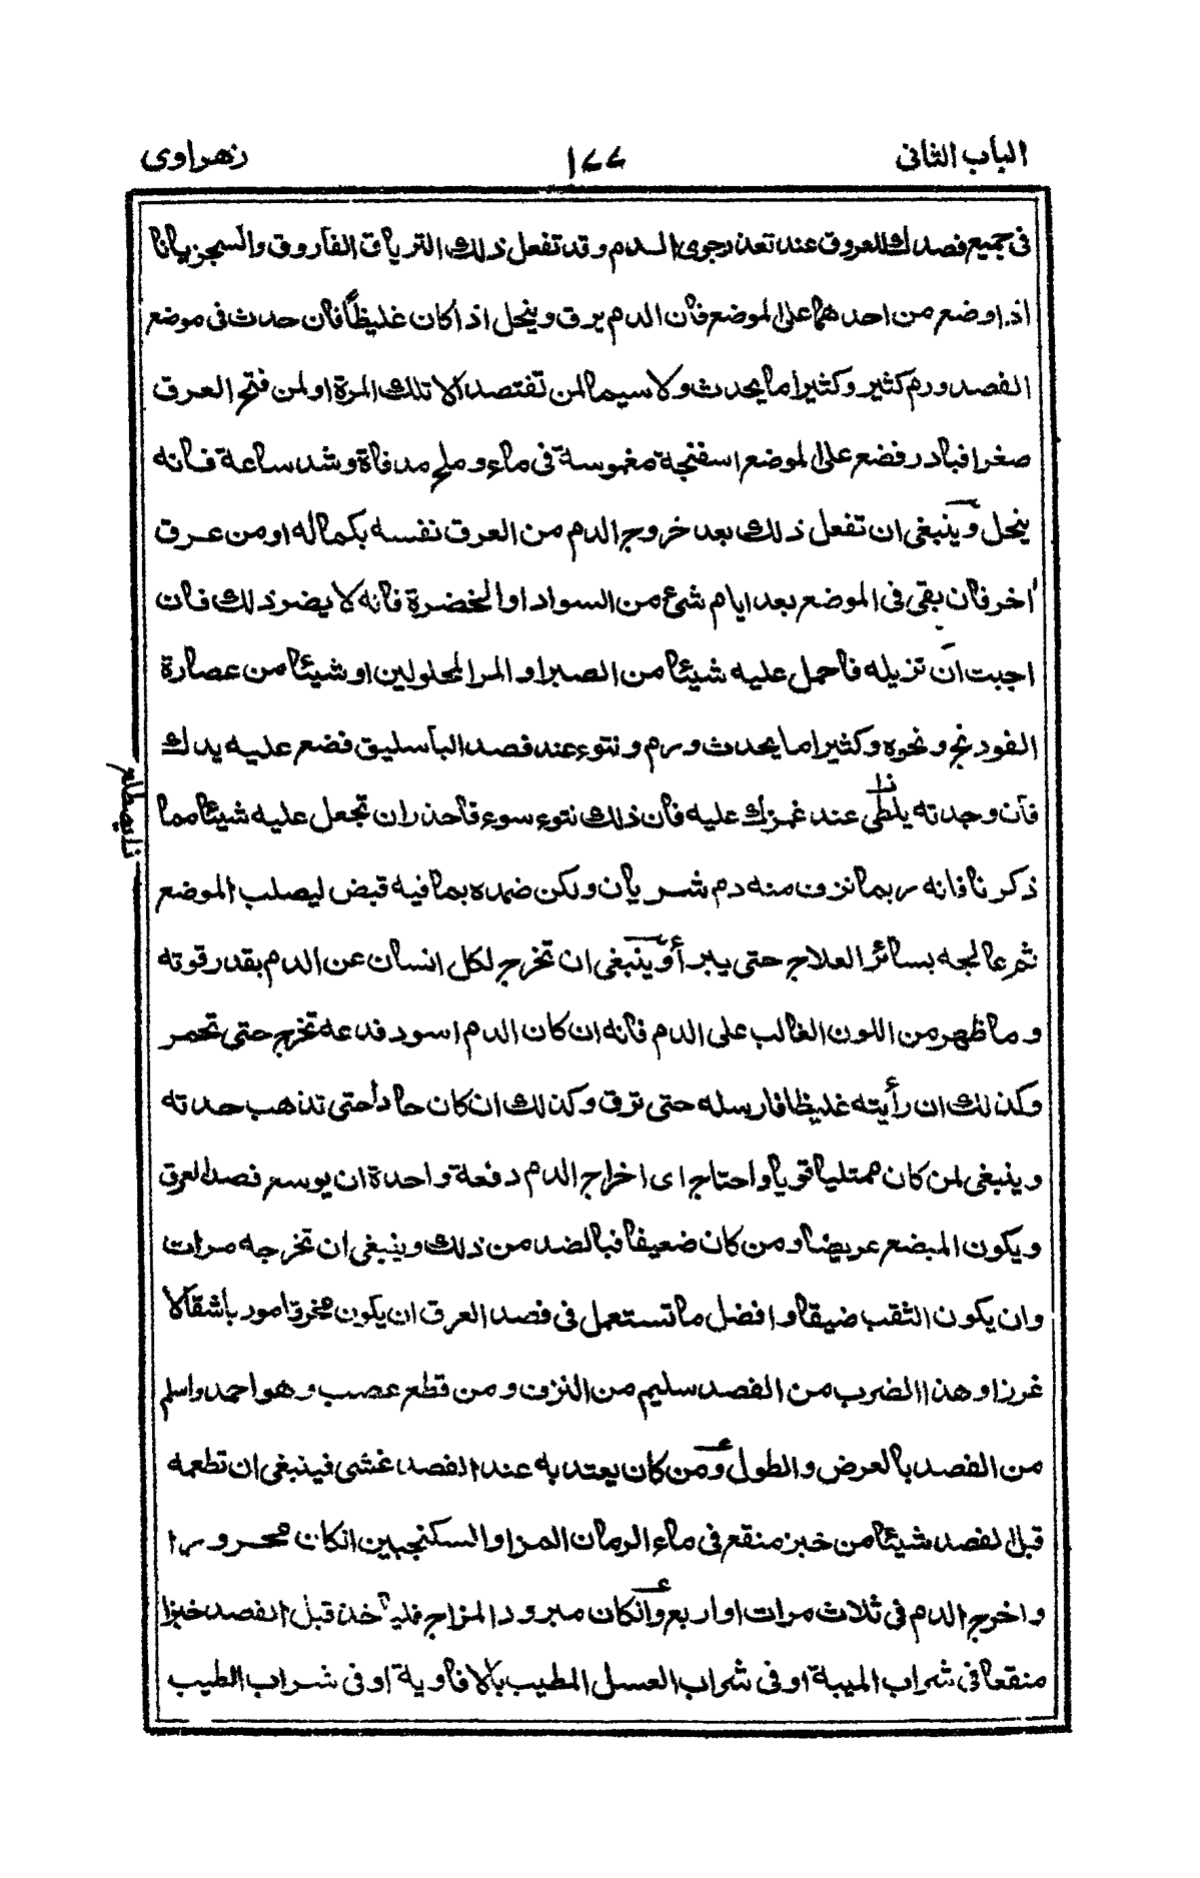 الباب الثانى ١٧٧ زهراوى
فى جميع فصدك العروق عند تعذر جرى الدم وقد تفعل ذلك الترياق الفاروق والسجزيانا
اذا وضع من احدهما على الموضع فان الدم يرق وينحل اذا كان غليظا فان حدث فى موضع
الفصد ورم كثير وكثيرا ما يحدث ولا سيما لمن تفتصد الا تلك المرة او لمن فتح العرق
صغرا فبادر فضع على الموضع اسفنجة مغموسة فى ماء وملح مدفاة وشد ساعة فانه
ينحل وينبغى ان تفعل ذلك بعد خروج الدم من العرق نفسه بكماله او من عرق
اخر فان بقى فى الموضع بعد ايام شئ من السواد او الخضرة فانه لا يضر ذلك فان
اجبت ان تزيله فاحمل عليه شيئا من الصبر او المر المحلولين او شيئا من عصارة
الفودنج ونحوه وكثيرا ما يحدث ورم ونتوء عند فصد الباسليق فضع عليه يدك
فان وجدته يلطى عند غمزك عليه فان ذلك نتوء سوء فاحذر ان تجعل عليه شيئا مما
ذكرنا فانه ربما نزف منه دم شريان ولكن ضمده بما فيه قبض ليصلب الموضع
ثم عالجه بسائر العلاج حتى يبرأ وينبغى ان تخرج لكل انسان عن الدم بقدر قوته
وما ظهر من اللون الغالب على الدم فانه ان كان الدم اسود فدعه تخرج حتى تحمر
وكذلك ان رأيته غليظا فارسله حتى ترق وكذلك ان كان حادا حتى تذهب حدته
وينبغى لمن كان ممتليا قويا واحتاج اى اخراج الدم دفعة واحدة ان يوسع فصد العرق
ويكون المبضع عريضا ومن كان ضعيفا فبالضد من ذلك وينبغى ان تخرجه مرات
وان يكون الثقب ضيقا وافضل ما تستعمل فى فصد العرق ان يكون بأشقالا
غرزا وهذا الضرب من الفصد سليم من النزف ومن قطع عصب وهو احمد واسلم
من الفصد بالعرض والطول ومن كان يعتد به عند الفصد غشى فينبغى ان تطعمه
قبل الفصد شيئا من خبز منقع فى ماء الرمان المز او السكنجبين انكان محرورا
واخرج الدم فى ثلاث مرات او اربع وانكان مبرود المزاج فليأخذ قبل الفصد خبزا
منقعا فى شراب الميبة او فى شراب العسل المطيب بالافاوية او فى شراب الطيب